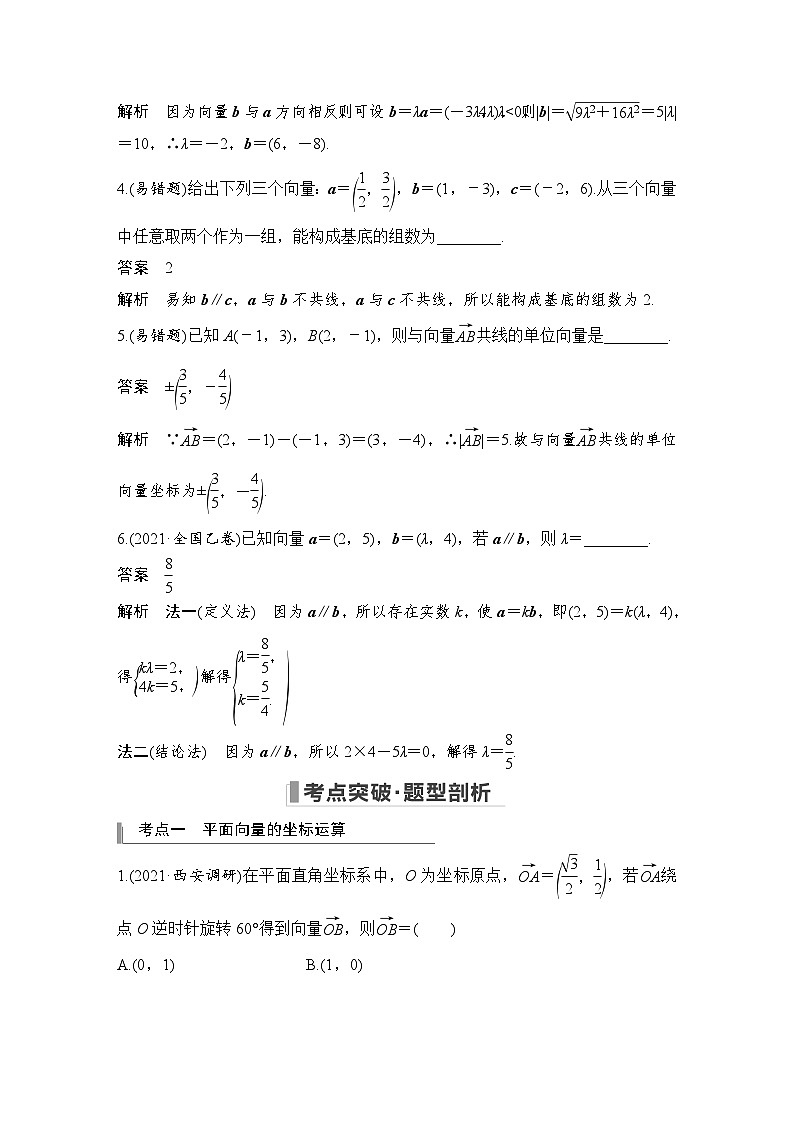 解析　因为向量b与a方向相反则可设b＝λa＝(－3λ4λ)λ<0则|b|＝√(9λ²＋16λ²)＝5|λ|
＝10，∴λ＝－2，b＝(6，－8).
4.(易错题)给出下列三个向量：a＝(1/2，3/2)，b＝(1，－3)，c＝(－2，6).从三个向量
中任意取两个作为一组，能构成基底的组数为________.
答案　2
解析　易知b∥c，a与b不共线，a与c不共线，所以能构成基底的组数为2.
5.(易错题)已知A(－1，3)，B(2，－1)，则与向量AB→共线的单位向量是________.
答案　±(3/5，－4/5)
解析　∵AB→＝(2，－1)－(－1，3)＝(3，－4)，∴|AB→|＝5.故与向量AB→共线的单位
向量坐标为±(3/5，－4/5).
6.(2021·全国乙卷)已知向量a＝(2，5)，b＝(λ，4)，若a∥b，则λ＝________.
答案　8/5
解析　法一(定义法)　因为a∥b，所以存在实数k，使a＝kb，即(2，5)＝k(λ，4)，
得{kλ＝2，4k＝5，)解得{λ＝8/5，k＝5/4.)
法二(结论法)　因为a∥b，所以2×4－5λ＝0，解得λ＝8/5.
考点突破·题型剖析
考点一　平面向量的坐标运算
1.(2021·西安调研)在平面直角坐标系中，O为坐标原点，OA→＝(√3/2，1/2)，若OA→绕
点O逆时针旋转60°得到向量OB→，则OB→＝(　　)
A.(0，1)　　B.(1，0)